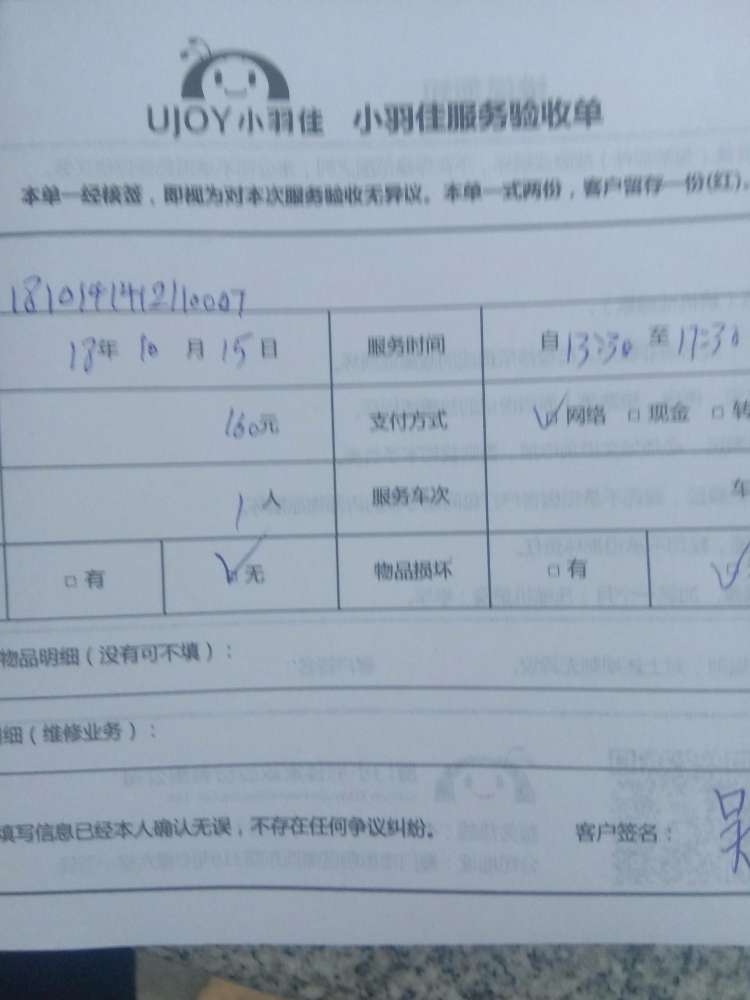 UJOY小羽佳 小羽佳服务验收单
本单一经核签，即视为对本次服务验收无异议。本单一式两份，客户留存一份(红)。
1810141412110007
18年 10 月 15日 服务时间 自13:30 至 17:30
160元 支付方式 ☑网络 □现金 □转
1人 服务车次 车
□有 ☑无 物品损坏 □有 ☑
物品明细（没有可不填）：
细（维修业务）：
填写信息已经本人确认无误，不存在任何争议纠纷。 客户签名： 吴